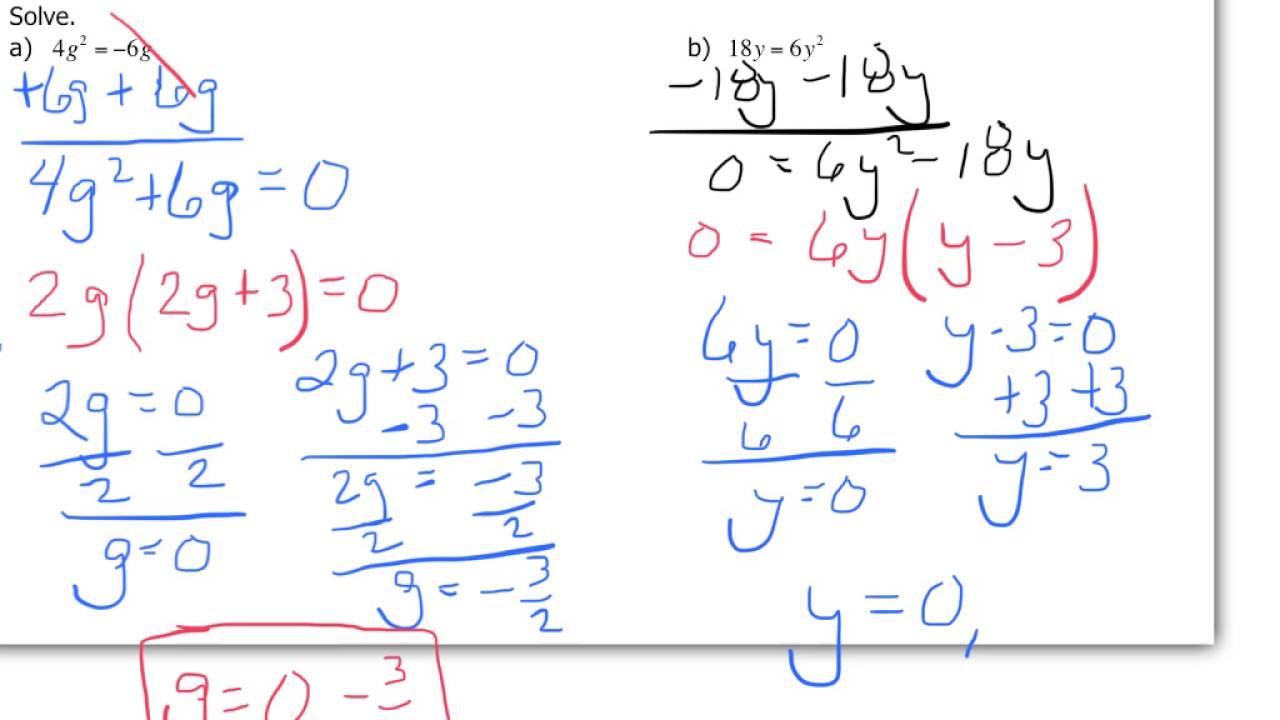 Solve.
a) 4g² = −6g
+6g + 6g
4g² + 6g = 0
2g(2g+3) = 0
2g = 0
2 2
g = 0
2g + 3 = 0
−3 −3
2g = −3
2 2
g = −3/2
g = 0 − 3
b) 18y = 6y²
−18y −18y
0 = 6y² − 18y
0 = 6y(y − 3)
6y = 0
6 6
y = 0
y − 3 = 0
+3 +3
y = 3
y = 0,